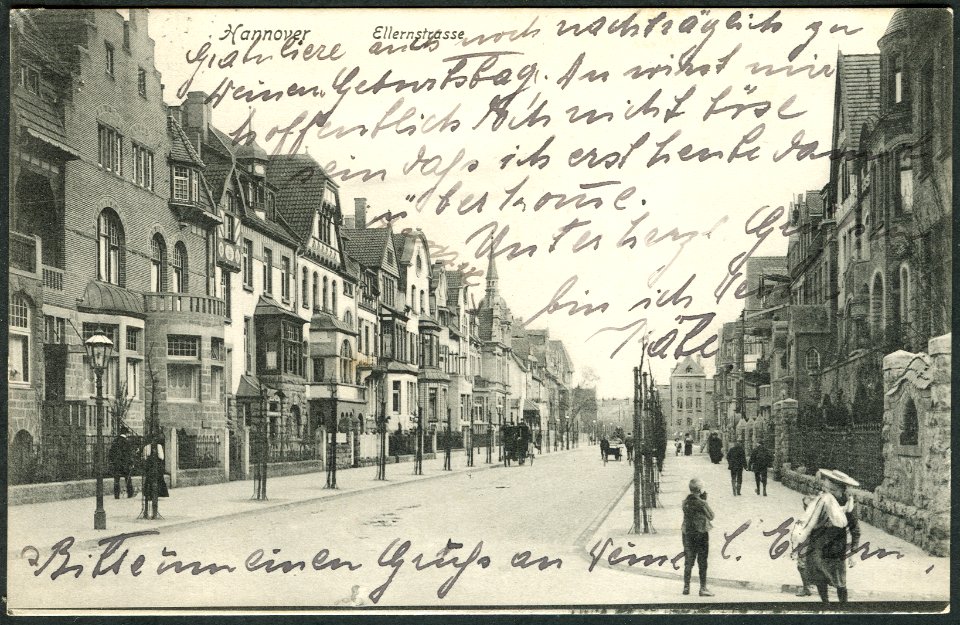 Hannover Ellernstrasse
Gratuliere auch noch nachträglich zu
Deinem Geburtstag. Du wirst mir
hoffentlich doch nicht böse
sein daß ich erst heute dazu
überkomme.
Unter herzl. Grüßen
bin ich Deine
Käte
Bitte um einen Gruß an Deine l. Eltern.